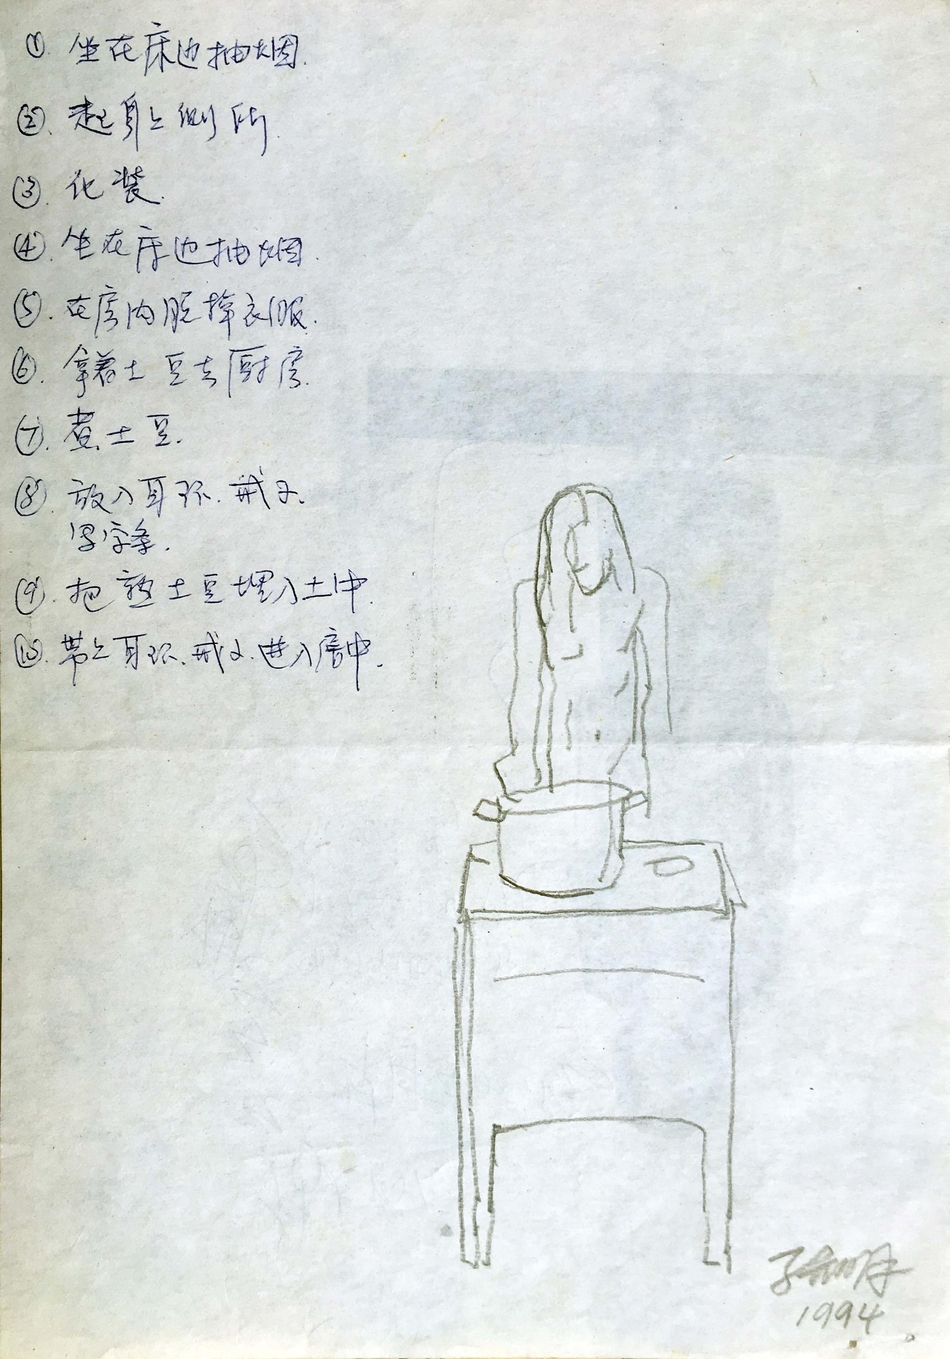 ① 坐在床边抽烟.
② 起身上厕所.
③ 化装.
④ 坐在床边抽烟.
⑤ 在房内脱掉衣服.
⑥ 拿着土豆去厨房.
⑦ 煮土豆.
⑧ 放入耳环.戒子.
写字条.
⑨ 把熟土豆埋入土中.
⑩ 带上耳环.戒子.进入唐中.
1994